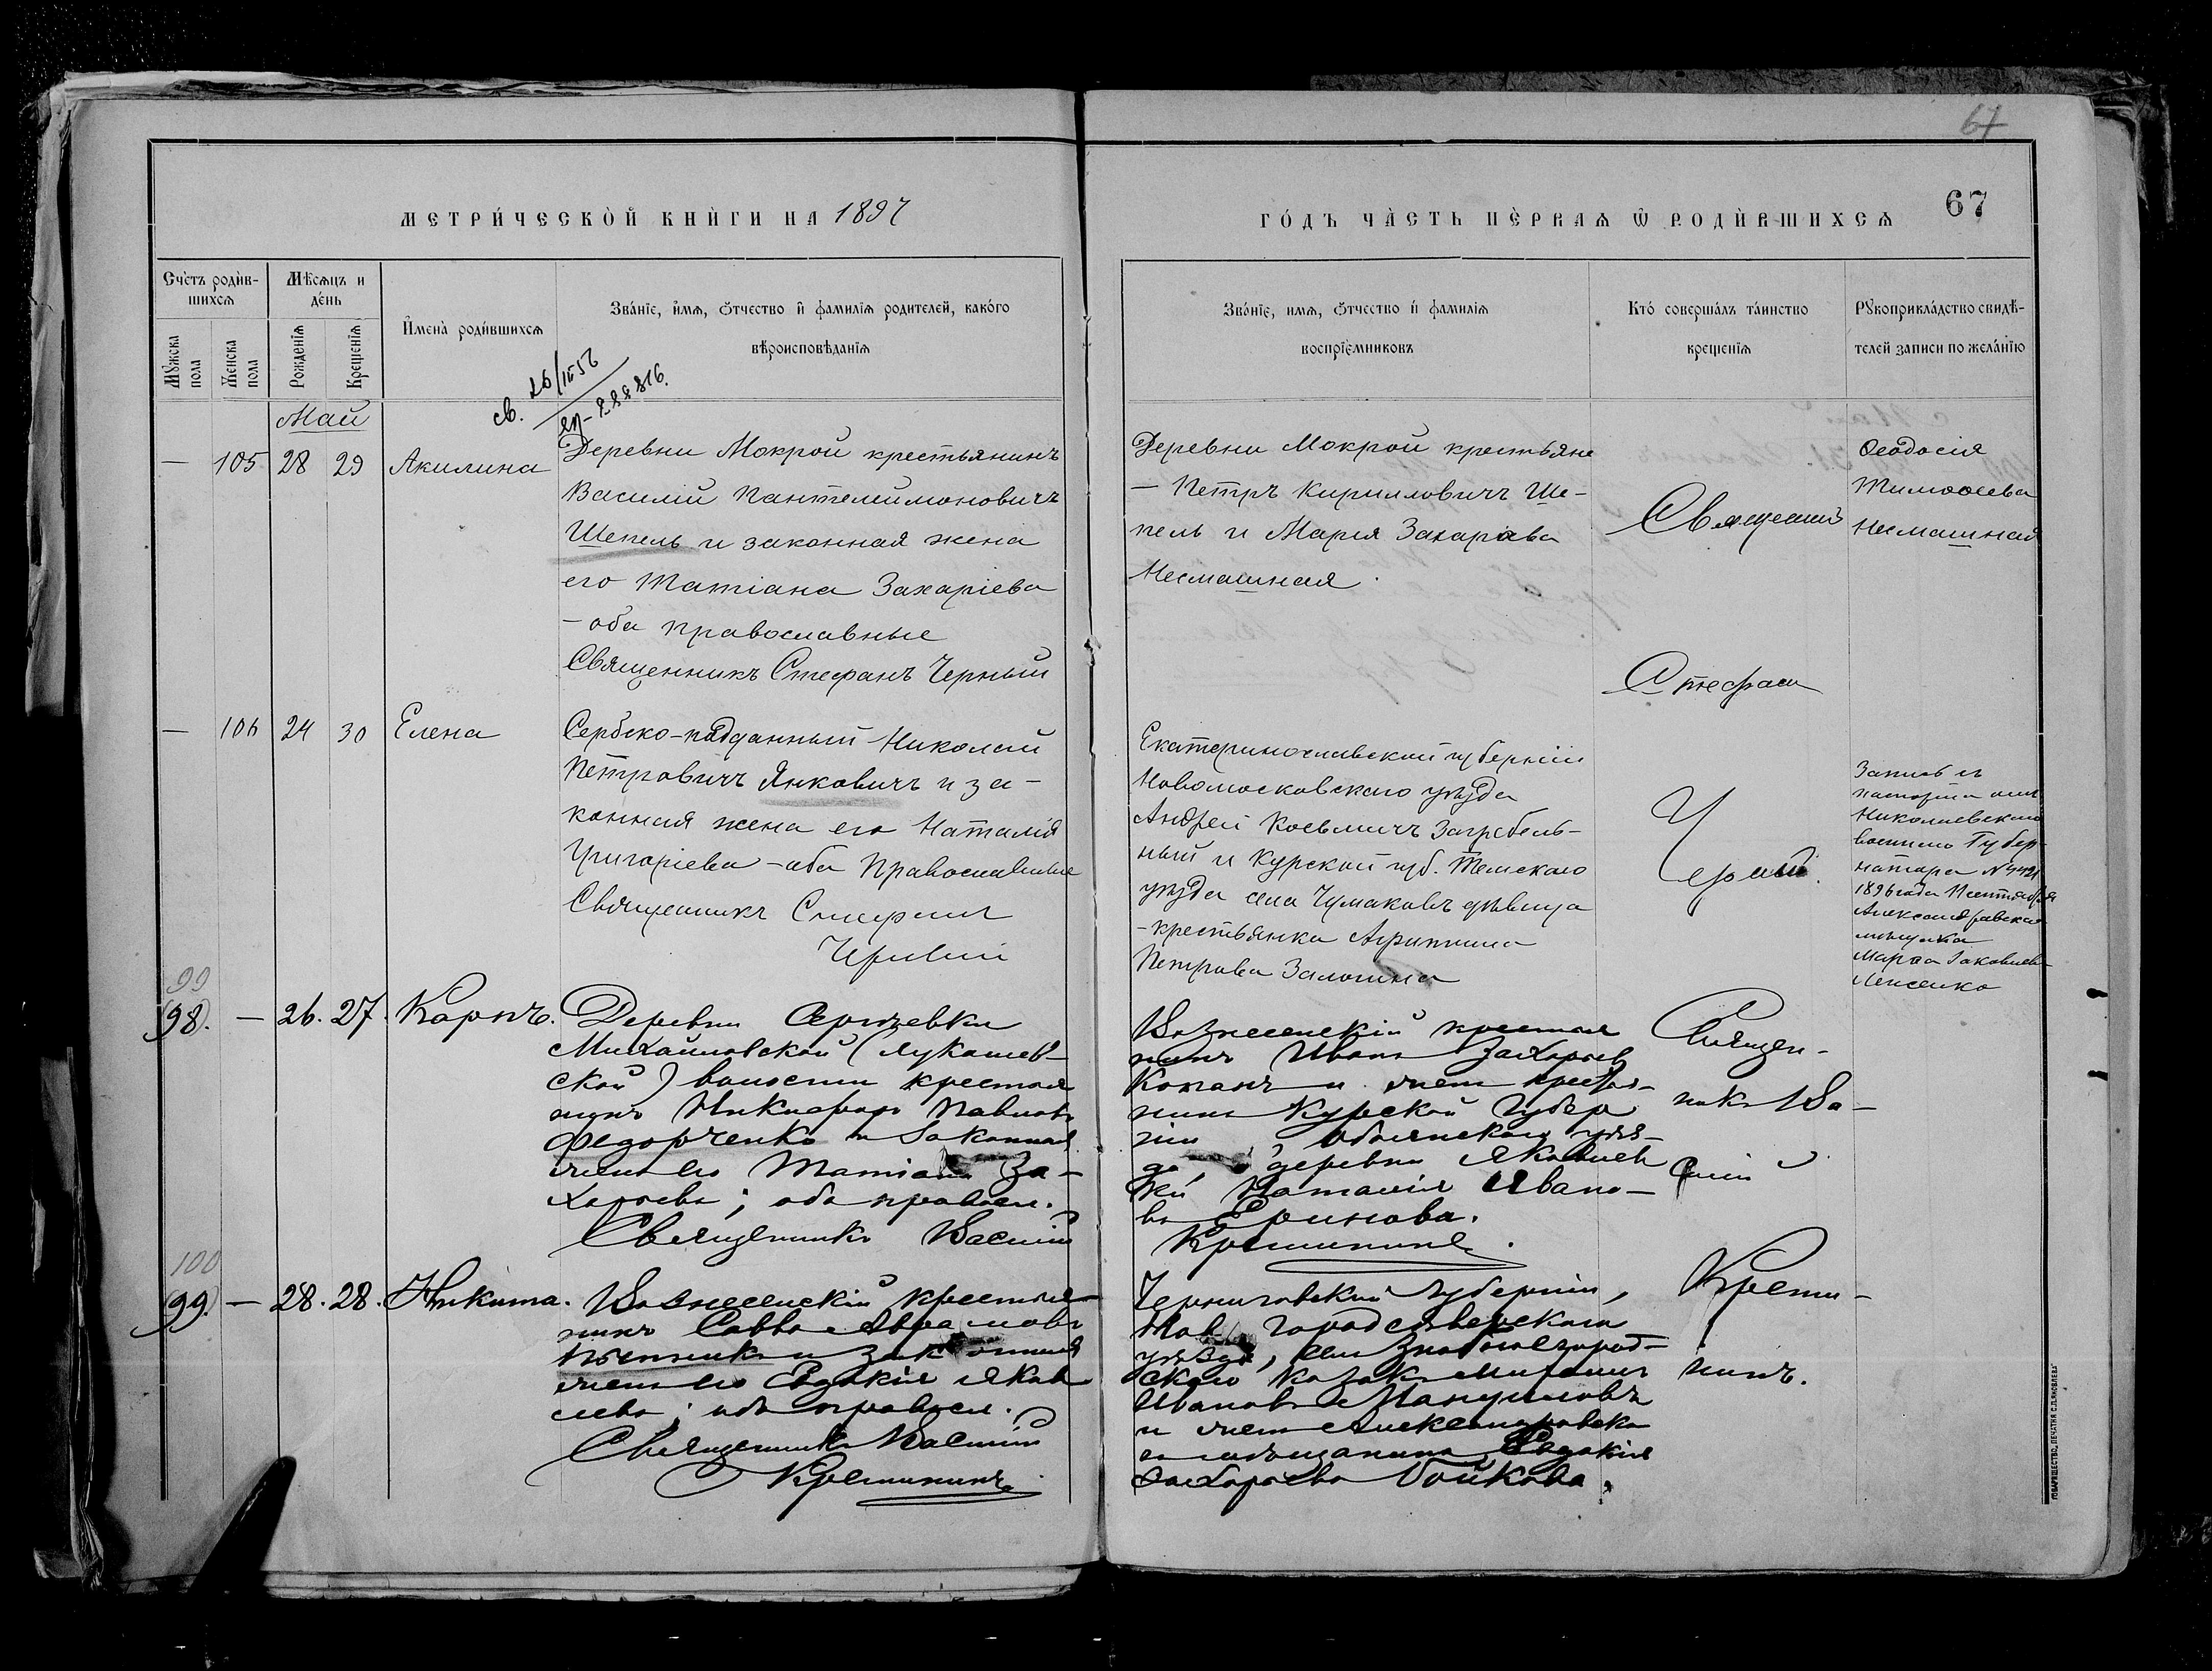 67
67
МЕТРИ́ЧЕСКОЙ КНИ́ГИ НА 1897
ГО́ДЪ ЧА́СТЬ ПЕ́РВАѦ Ѿ РОДИ́ВШИХСѦ
Сче́тъ роди́в-
шихсѧ
Мѣ́сѧцъ и
де́нь
Мꙋ́жска
пола
Же́нска
пола
Рожде́нїѧ
Креще́нїѧ
И҆мена̀ роди́вшихсѧ
Зва́нїе, и҆́мѧ, ѻ҆́тчество и҆ фами́лїѧ роди́телей, како́го
вѣроисповѣ́данїѧ
Зва́нїе, имѧ, ѻ҆́тчество и҆ фами́лїѧ
воспрїе́мниковъ
Кто́ соверша́лъ та́инство
креще́нїѧ
Рꙋкоприкла́дство свидѣ́-
телей записи по жела́нїю
св.
Май
— 105 28 29 Акилина
Деревни Мокрой крестьянинъ
Василій Пантелеймоновичъ
Шепель и законная жена
его Татіана Захаріева
- оба православные
Священникъ Стефанъ Черный
Деревни Мокрой крестьяне
— Петръ Кирилловичъ Ше-
пель и Марія Захаріева
Несмашная.
Священникъ
Стефанъ
Ѳеодосія
Тимоѳеева
Несмашная
— 106 24 30 Елена
Сербско-подданный Николай
Петровичъ Янковичъ и за-
конная жена его Наталія
Григоріева - оба Православные
Священникъ Стефанъ
Черный
Екатеринославской губерніи
Новомосковскаго уѣзда
Андрей Косьмичъ Загребель-
ный и Курской губ. Тимскаго
уѣзда села Чумаковъ дѣвица
- крестьянка Агриппина
Петрова Залогина
Черный.
Запись съ
паспорта
Николаевскаго
военнаго Губер-
натора
1896 года
Александровская
мѣщанка
Марѳа Іаковлева
99
98. — 26. 27. Карпъ.
Деревни Сергѣевки
Михайловской (Лукашев-
ской) волости крестья
нинъ Никифоръ Павловъ
Федорченко и законная
жена его Татіана За-
харьева; оба правосл.
Священникъ Василій
Вознесенскій крестья
нинъ Иванъ Захарьев
и жена крестья-
нина Курской Губер
ніи, Обоянскаго уѣз-
да, деревни Яковлев
ки Наталія Ивано-
ва Ерихова.
Крестининъ.
Священ-
никъ Ва-
силій
100
99. — 28. 28. Никита.
Вознесенскій крестья-
нинъ Савва Аврамовъ
и законная
жена его Евдокія Яков
лева; оба правосл.
Священникъ Василій
Крестининъ.
Черниговской Губерніи,
Нов городсѣверскаго
уѣзда, села
скаго козакъ
Ивановъ Мануиловъ
и жена Александровска
го мѣщанина Евдокія
Захарьева Бойкова.
Крести-
нинъ.
ТОВАРИЩЕСТВО „ПЕЧАТНЯ С.П. ЯКОВЛЕВА"